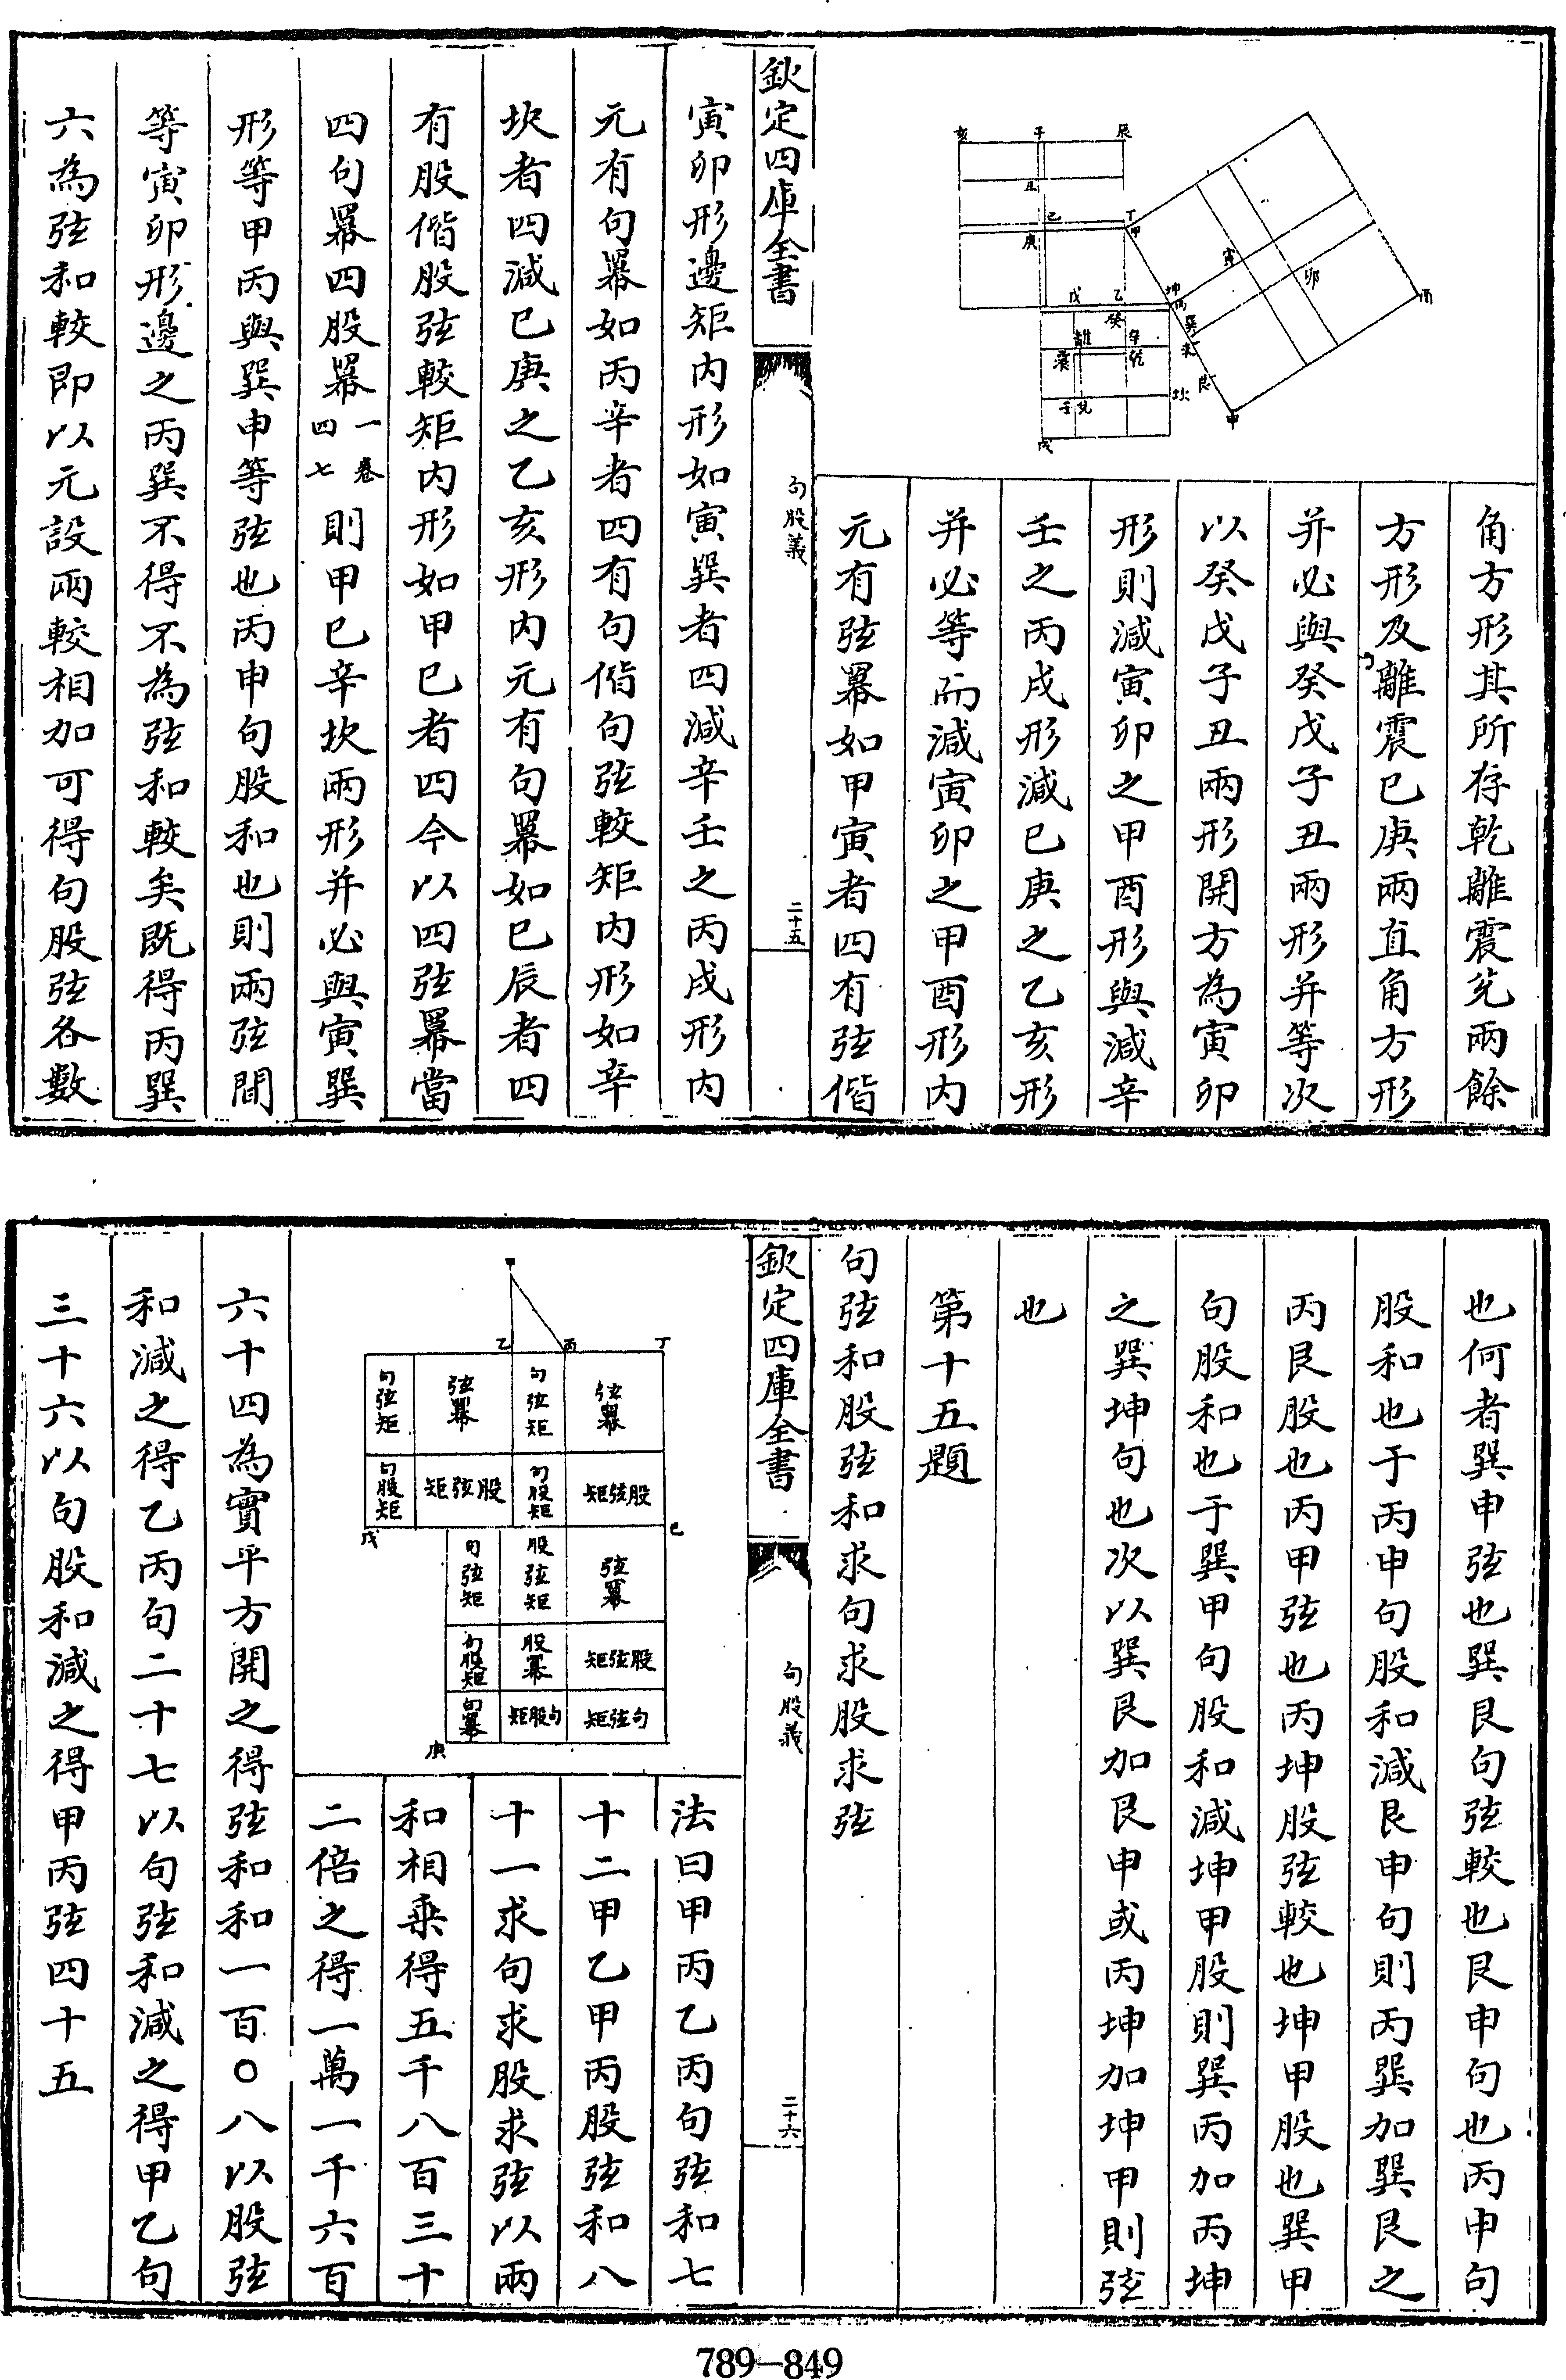 角方形其所存乾離震兌兩餘
方形及離震已庚兩直角方形
并必與癸戊子丑兩形并等次
以癸戊子丑兩形開方為寅卯
形則減寅卯之甲酉形與減辛
壬之丙戌形減已庚之乙亥形
并必等而減寅卯之甲酉形内
元有弦羃如甲寅者四有弦偕
欽定四庫全書
句股義
二十五
寅卯形邊矩内形如寅巽者四減辛壬之丙戌形内
元有句羃如丙辛者四有句偕句弦較矩内形如辛
坎者四減已庚之乙亥形内元有句羃如已辰者四
有股偕股弦較矩内形如甲已者四今以四弦羃當
四句羃四股羃一卷四七則甲已辛坎兩形并必與寅巽
形等甲丙與巽申等弦也丙申句股和也則兩弦間
等寅卯形邊之丙巽不得不為弦和較矣既得丙巽
六為弦和較即以元設兩較相加可得句股弦各數
亥
子
辰
丑
已
丁
甲
庚
戊
乙
坤
丙
癸
巽
寅
卯
酉
離
辛
未
震
乾
艮
坎
壬
兌
申
戌
也何者巽申弦也巽艮句弦較也艮申句也丙申句
股和也于丙申句股和減艮申句則丙巽加巽艮之
丙艮股也丙甲弦也丙坤股弦較也坤甲股也巽甲
句股和也于巽甲句股和減坤甲股則巽丙加丙坤
之巽坤句也次以巽艮加艮申或丙坤加坤甲則弦
也
第十五題
句弦和股弦和求句求股求弦
欽定四庫全書
句股義
二十六
法曰甲丙乙丙句弦和七
十二甲乙甲丙股弦和八
十一求句求股求弦以兩
和相乘得五千八百三十
二倍之得一萬一千六百
六十四為實平方開之得弦和和一百〇八以股弦
和減之得乙丙句二十七以句弦和減之得甲乙句
三十六以句股和減之得甲丙弦四十五
甲
乙
丙
丁
句弦矩
弦羃
句弦矩
弦羃
句股矩
矩弦股
句股矩
矩弦股
戊
已
句弦矩
股弦矩
弦羃
句股矩
股羃
矩弦股
句羃
矩股句
矩弦句
庚
789-849